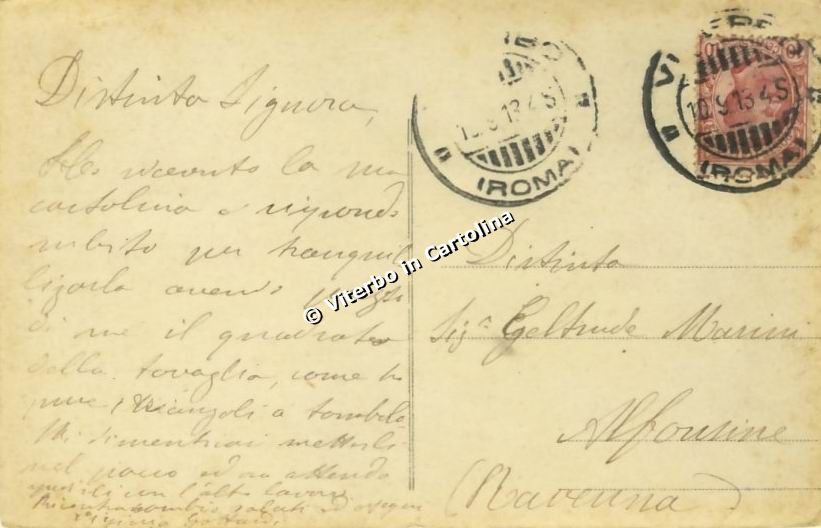 Distinta Signora,
Ho ricevuto la sua
cartolina e rispondo
subito per tranquil
lizzarla avendo
di me il quadrato
della tovaglia, come ho
pure i triangoli a tombolo
Mi dimenticai metterli
nel pacco ed ora attendo
spedirli con l'altro lavoro
ricambio saluti ed ossequi
VITERBO
10.9.13 4S
(ROMA)
VITERBO
10.9.13 4S
(ROMA)
Distinta
Sigª Geltrude Marini
Alfonsine
(Ravenna)
© Viterbo in Cartolina